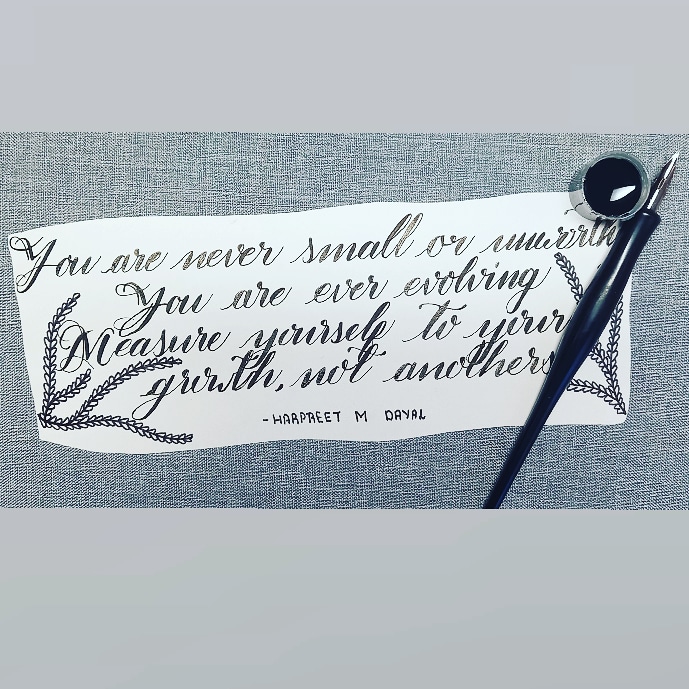 You are never small or
You are ever evolving
Measure yourself to your
growth, not anothers
- HARPREET M DAYAL